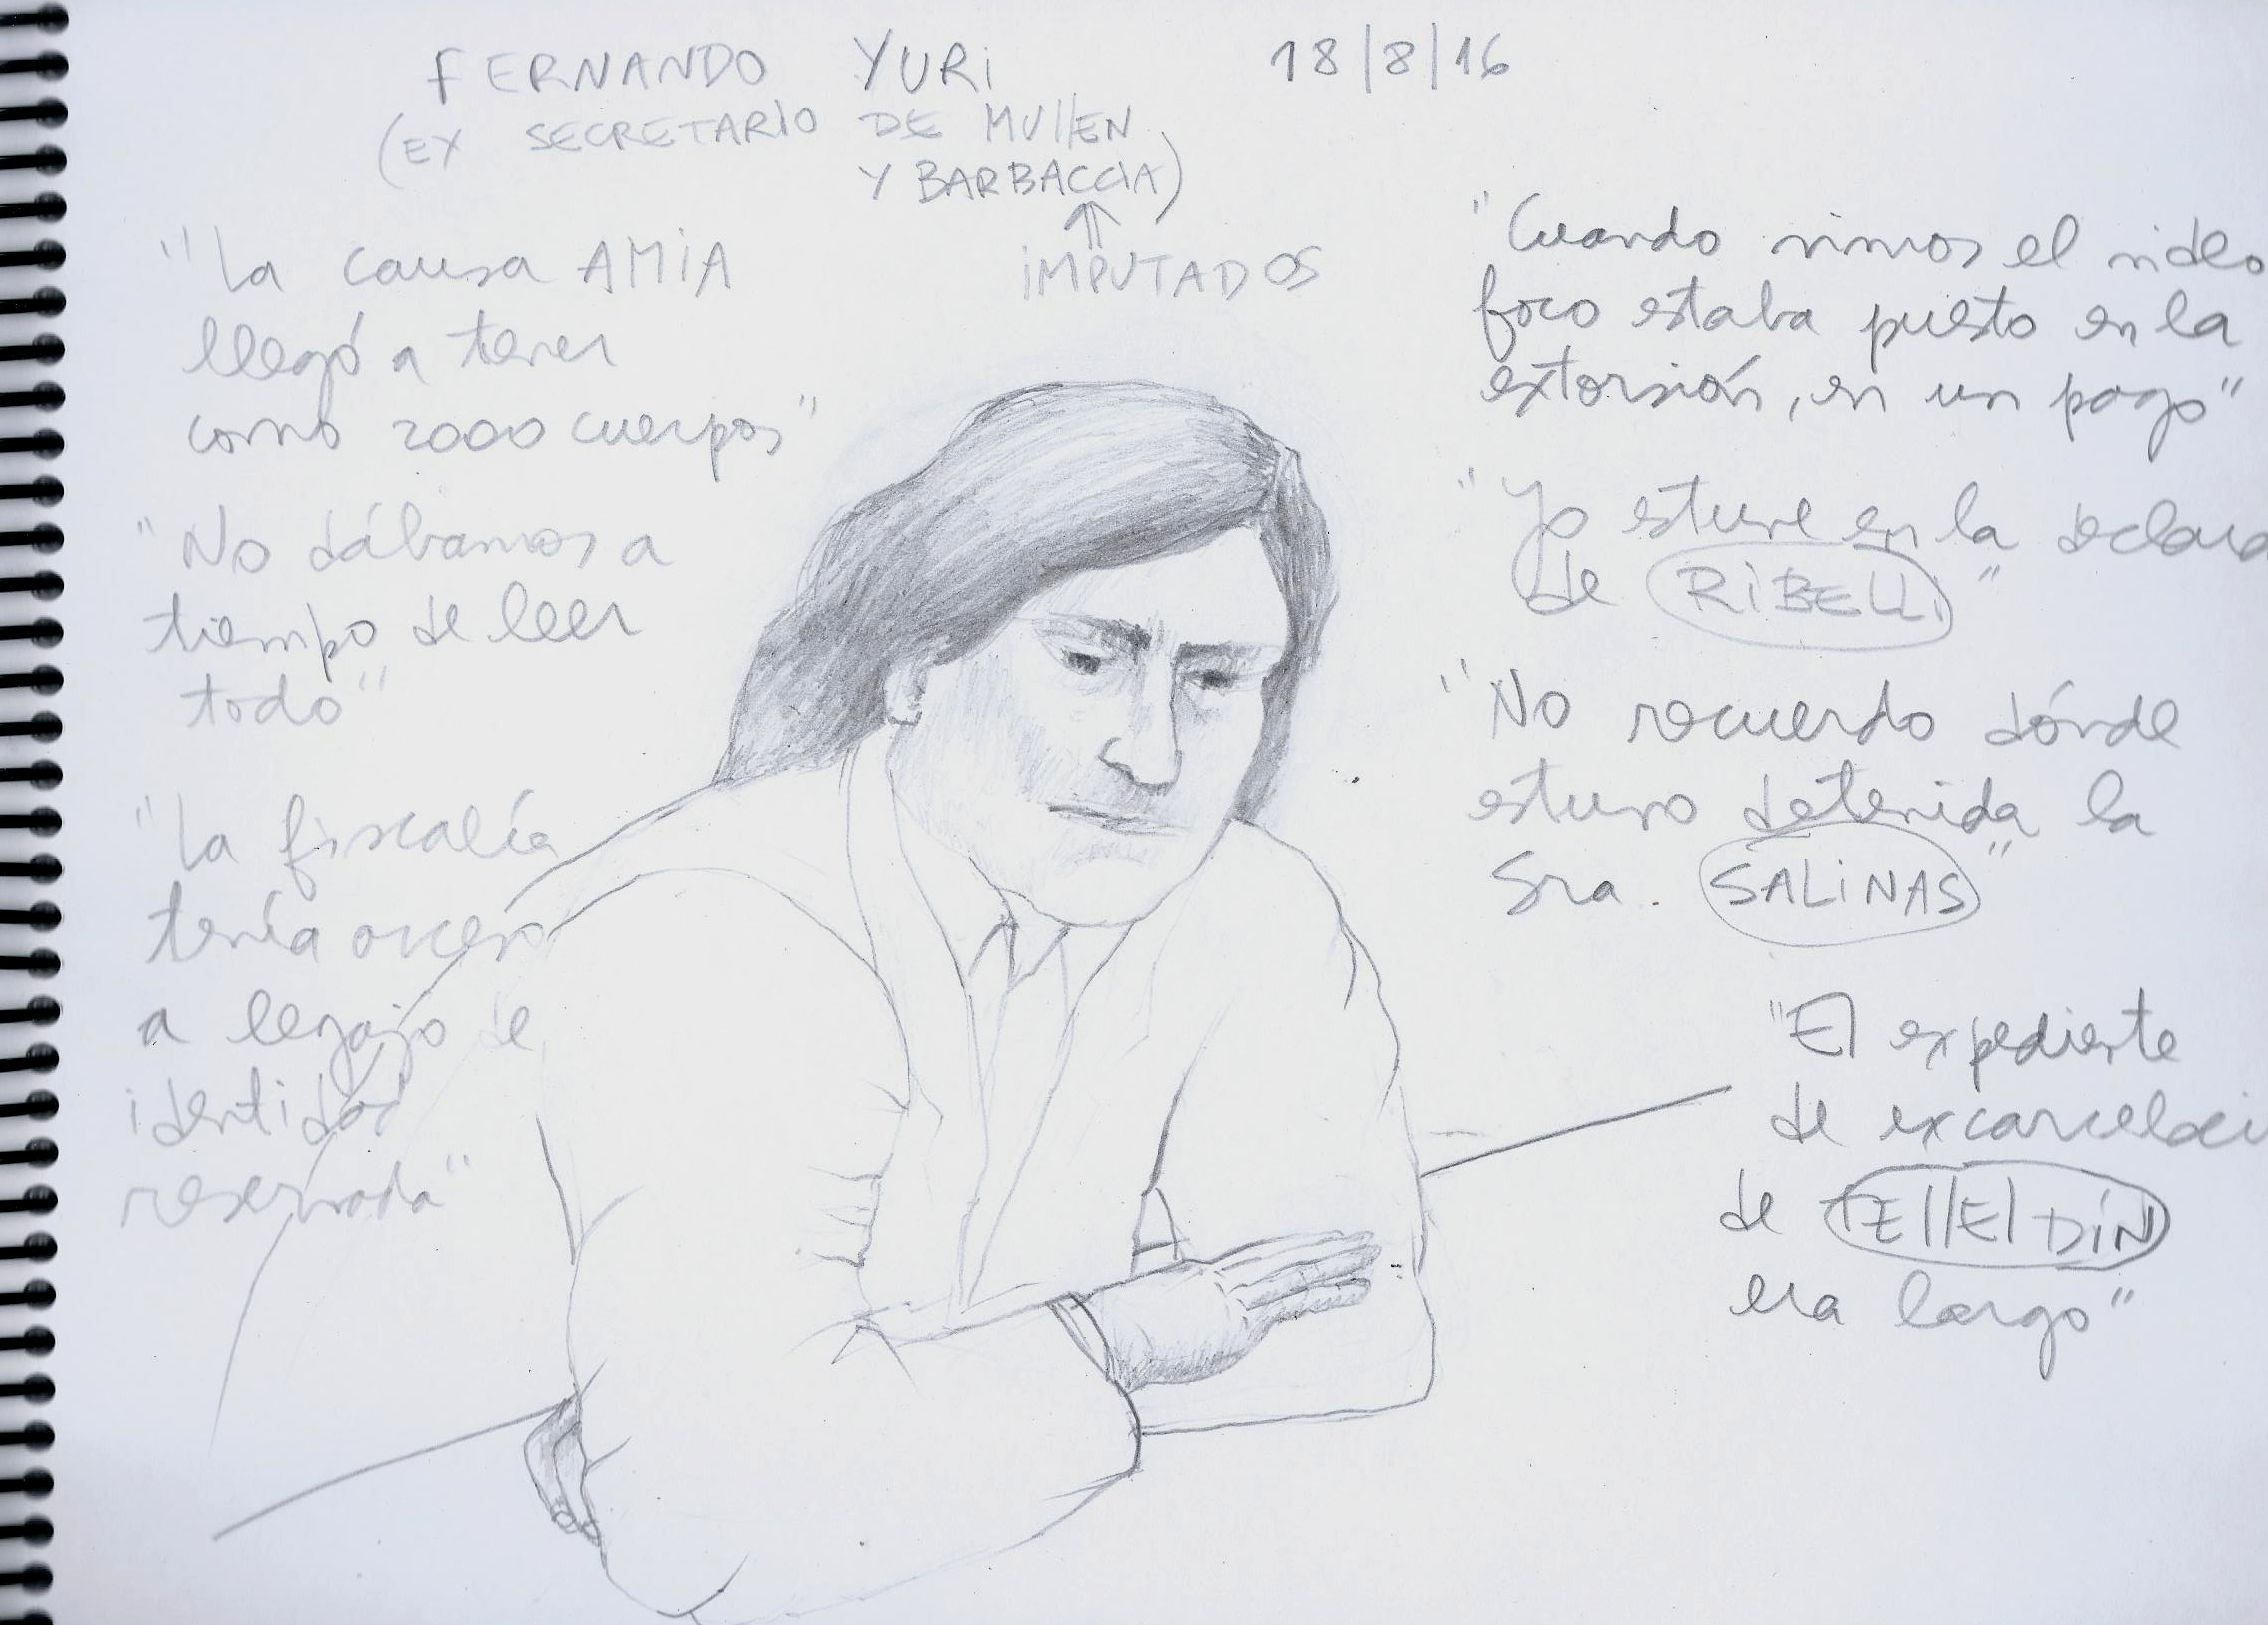 FERNANDO YURI 18/8/16
(EX SECRETARIO DE MULLEN
Y BARBACCIA)
⇑
IMPUTADOS
"La causa AMIA
llegó a tener
como 2000 cuerpos"
"No dábamos a
tiempo de leer
todo"
"La fiscalía
tenía acceso
a legajo de
identidad
reservada"
"Cuando vimos el video
foco estaba puesto en la
extorsión, en un pago"
"Yo estuve en la declara
de RIBELLI"
"No recuerdo dónde
estuvo detenida la
Sra. SALINAS"
"El expediente
de excarcelaci
de TELLELDÍN
era largo"